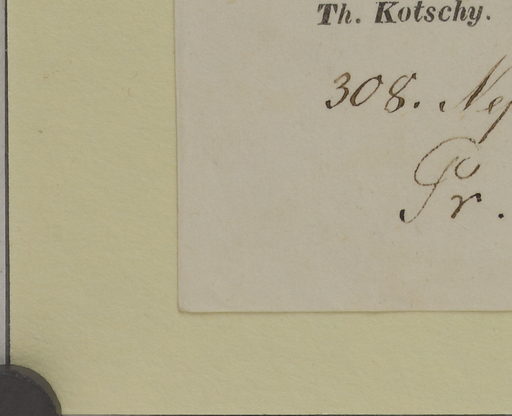 Th. Kotschy.
308. Nep
Pr.